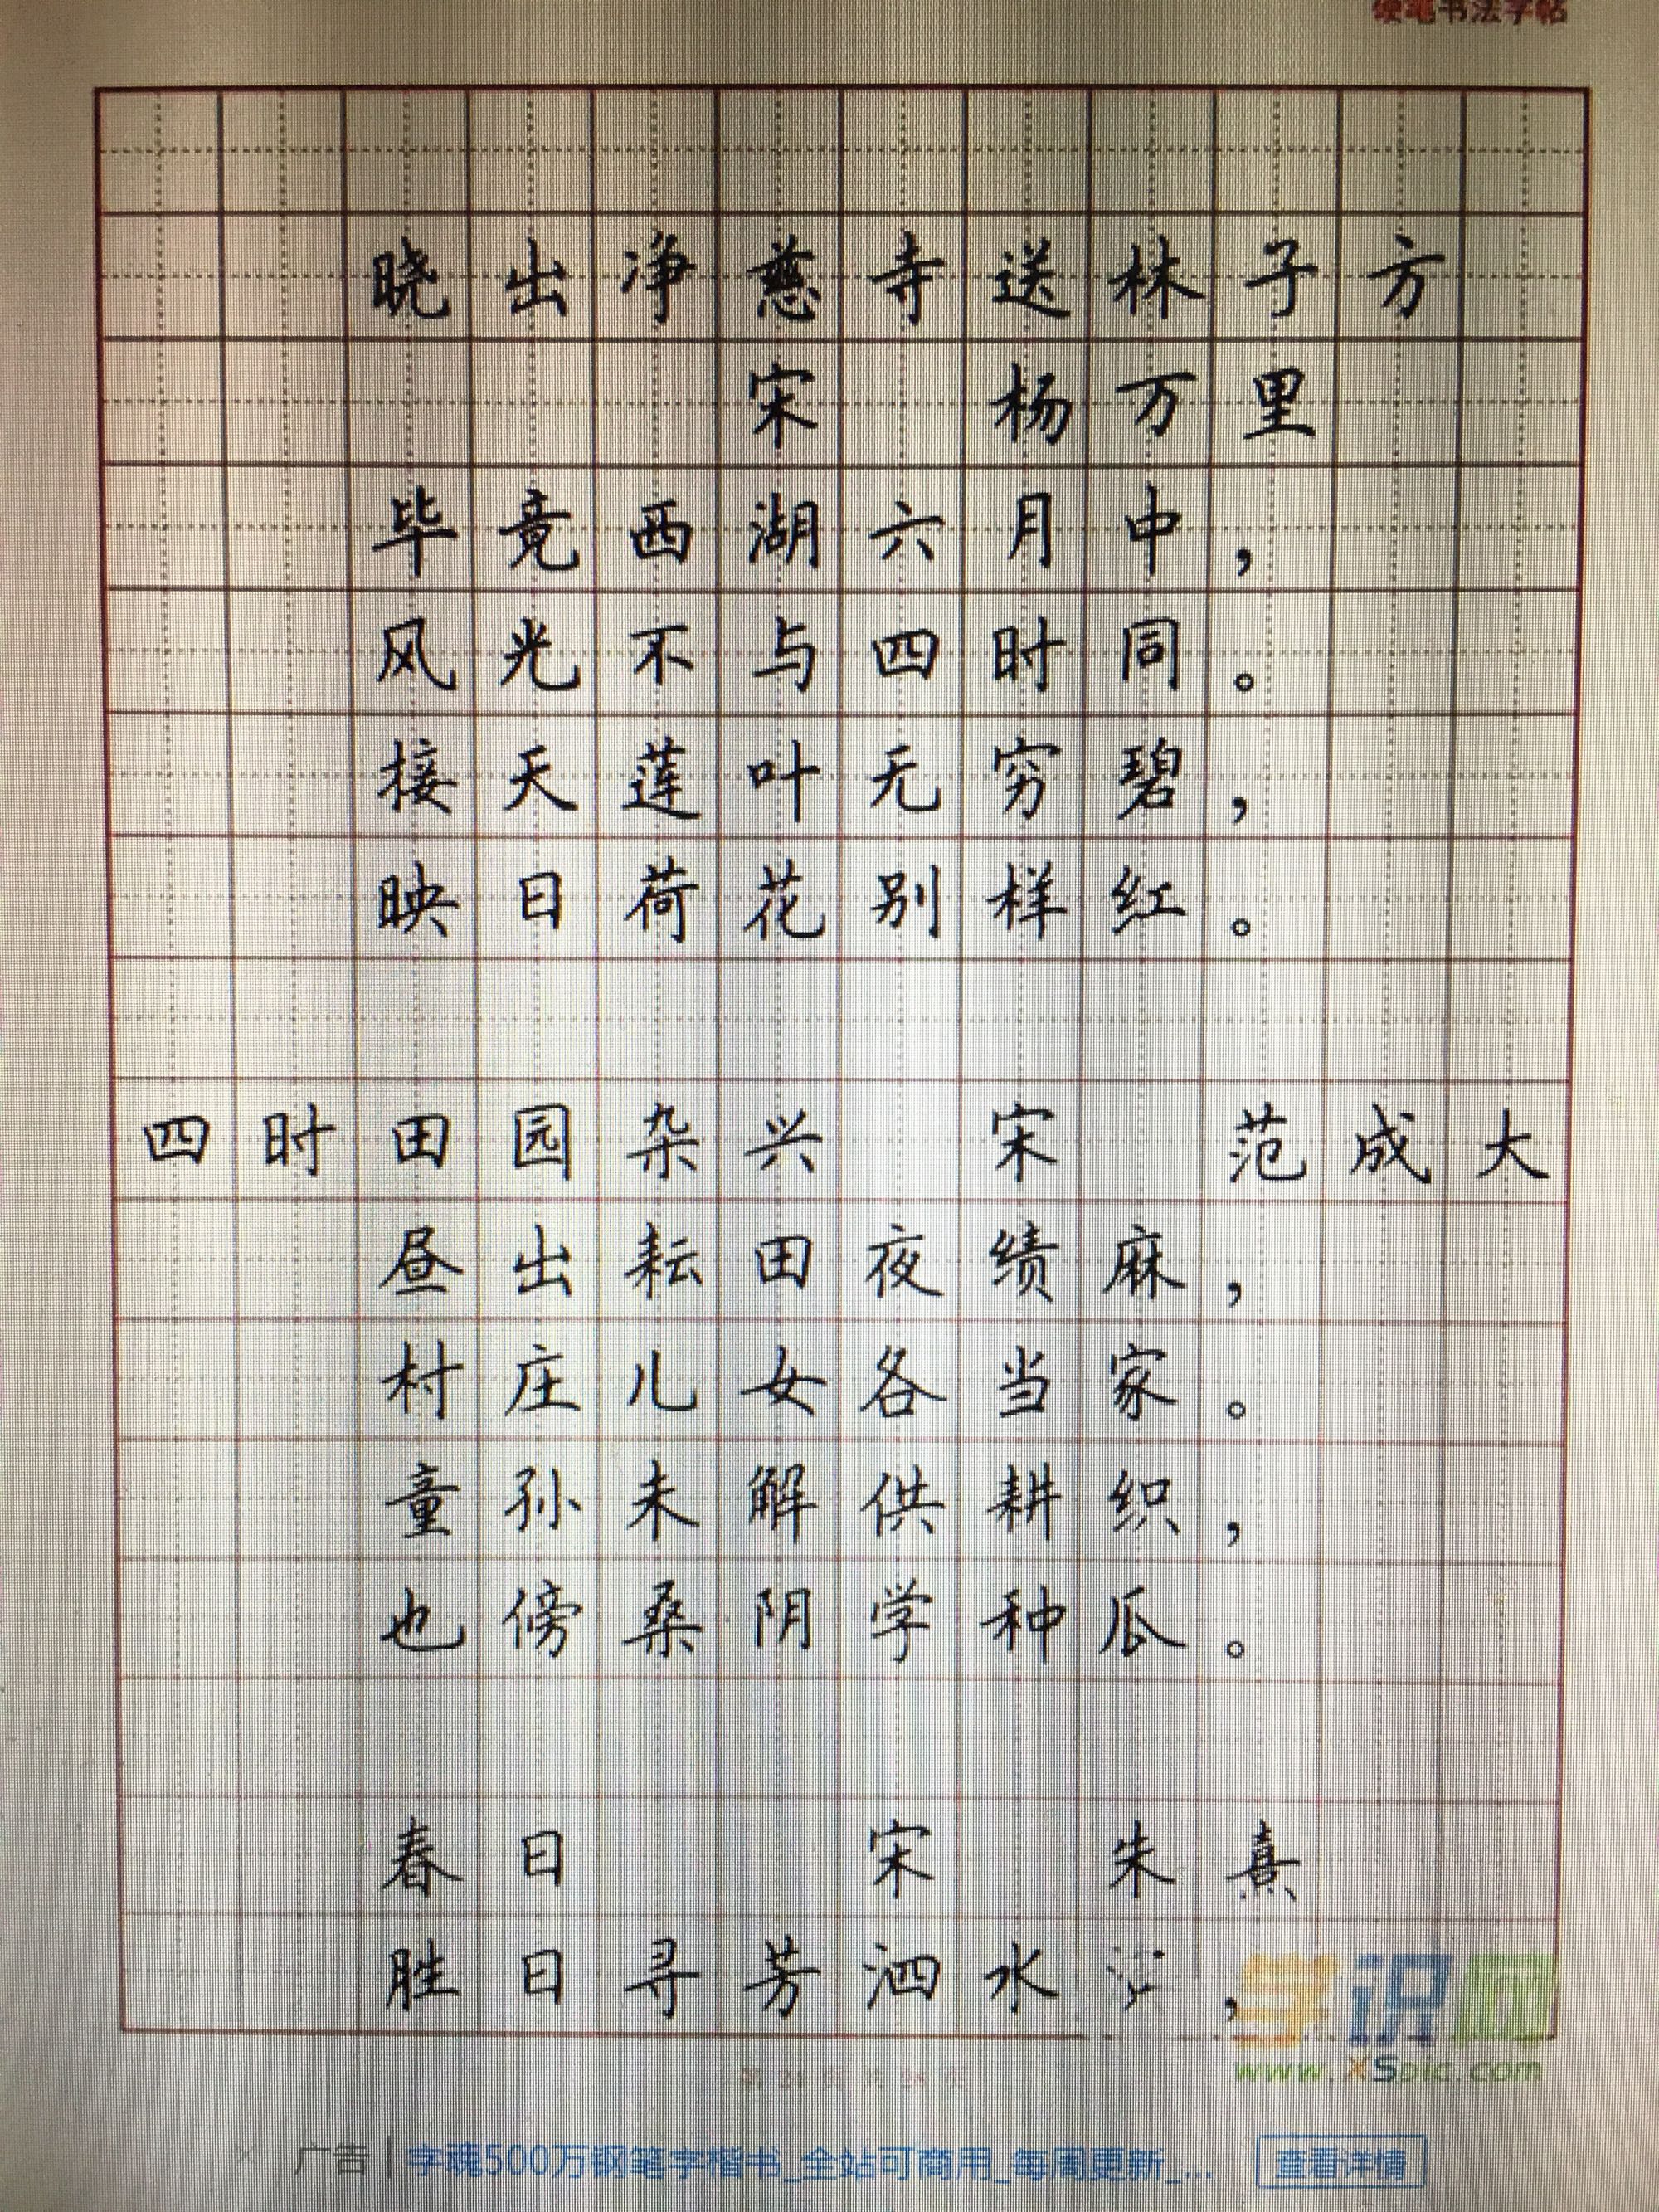 硬笔书法字帖
晓出净慈寺送林子方
宋 杨万里
毕竟西湖六月中，
风光不与四时同。
接天莲叶无穷碧，
映日荷花别样红。
四时田园杂兴 宋 范成大
昼出耘田夜绩麻，
村庄儿女各当家。
童孙未解供耕织，
也傍桑阴学种瓜。
春日 宋 朱熹
胜日寻芳泗水，
学识网
www.XSpic.com
广告 | 字魂500万钢笔字楷书_全站可商用_每周更新_... 查看详情